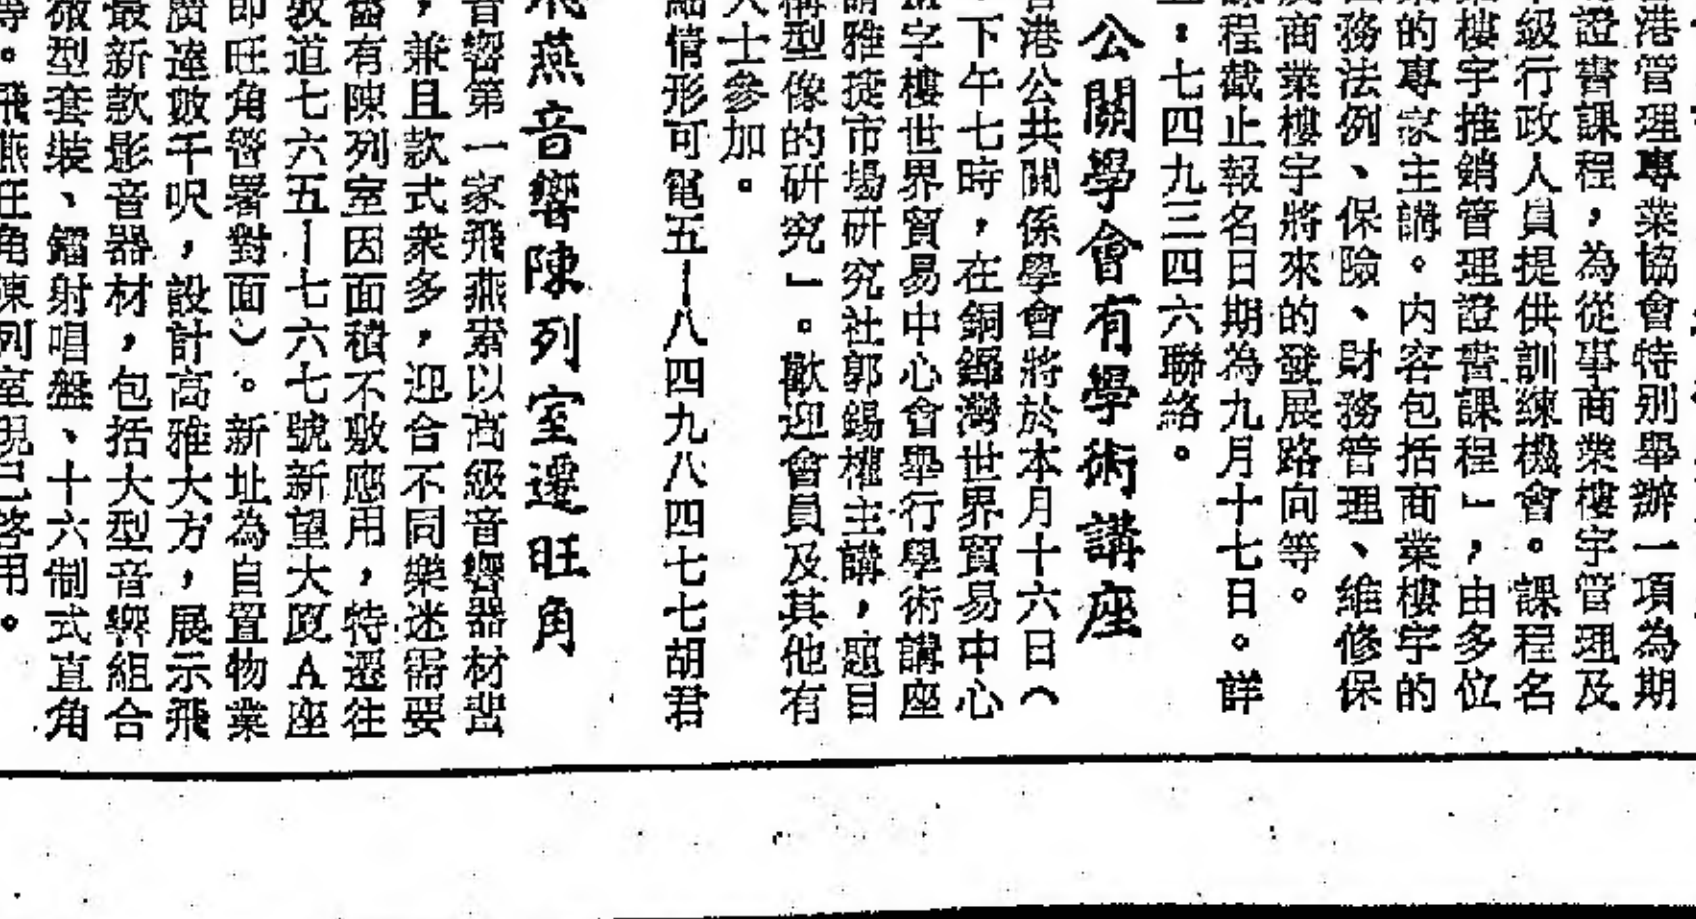 港管理專業協會特別舉辦一項為期
證書課程，為從事商業樓宇管理及
級行政人員提供訓練機會。課程名
樓宇推銷管理證書課程」，由多位
的專家主講。内容包括商業樓宇的
務法例、保險、財務管理、維修保
商業樓宇將來的發展路向等。
程截止報名日期為九月十七日。詳
：七四九三四六聯絡。
公關學會有學術講座
港公共關係學會將於本月十六日（
下午七時，在銅鑼灣世界貿易中心
字樓世界貿易中心會舉行學術講座
雅捷市場研究社郭錫權主講，題目
型像的研究」。歡迎會員及其他有
士參加。
情形可電五－八四九八四七七胡君
燕音響陳列室遷旺角
音響第一家飛燕素以高級音響器材豐
，兼且款式衆多，迎合不同樂迷需要
有陳列室因面積不敷應用，特遷往
道七六五－七六七號新望大廈A座
即旺角警署對面）。新址為自置物業
達數千呎，設計高雅大方，展示飛
最新款影音器材，包括大型音響組合
型套裝、鐳射唱盤、十六制式直角
等。飛燕旺角陳列室現已啓用。